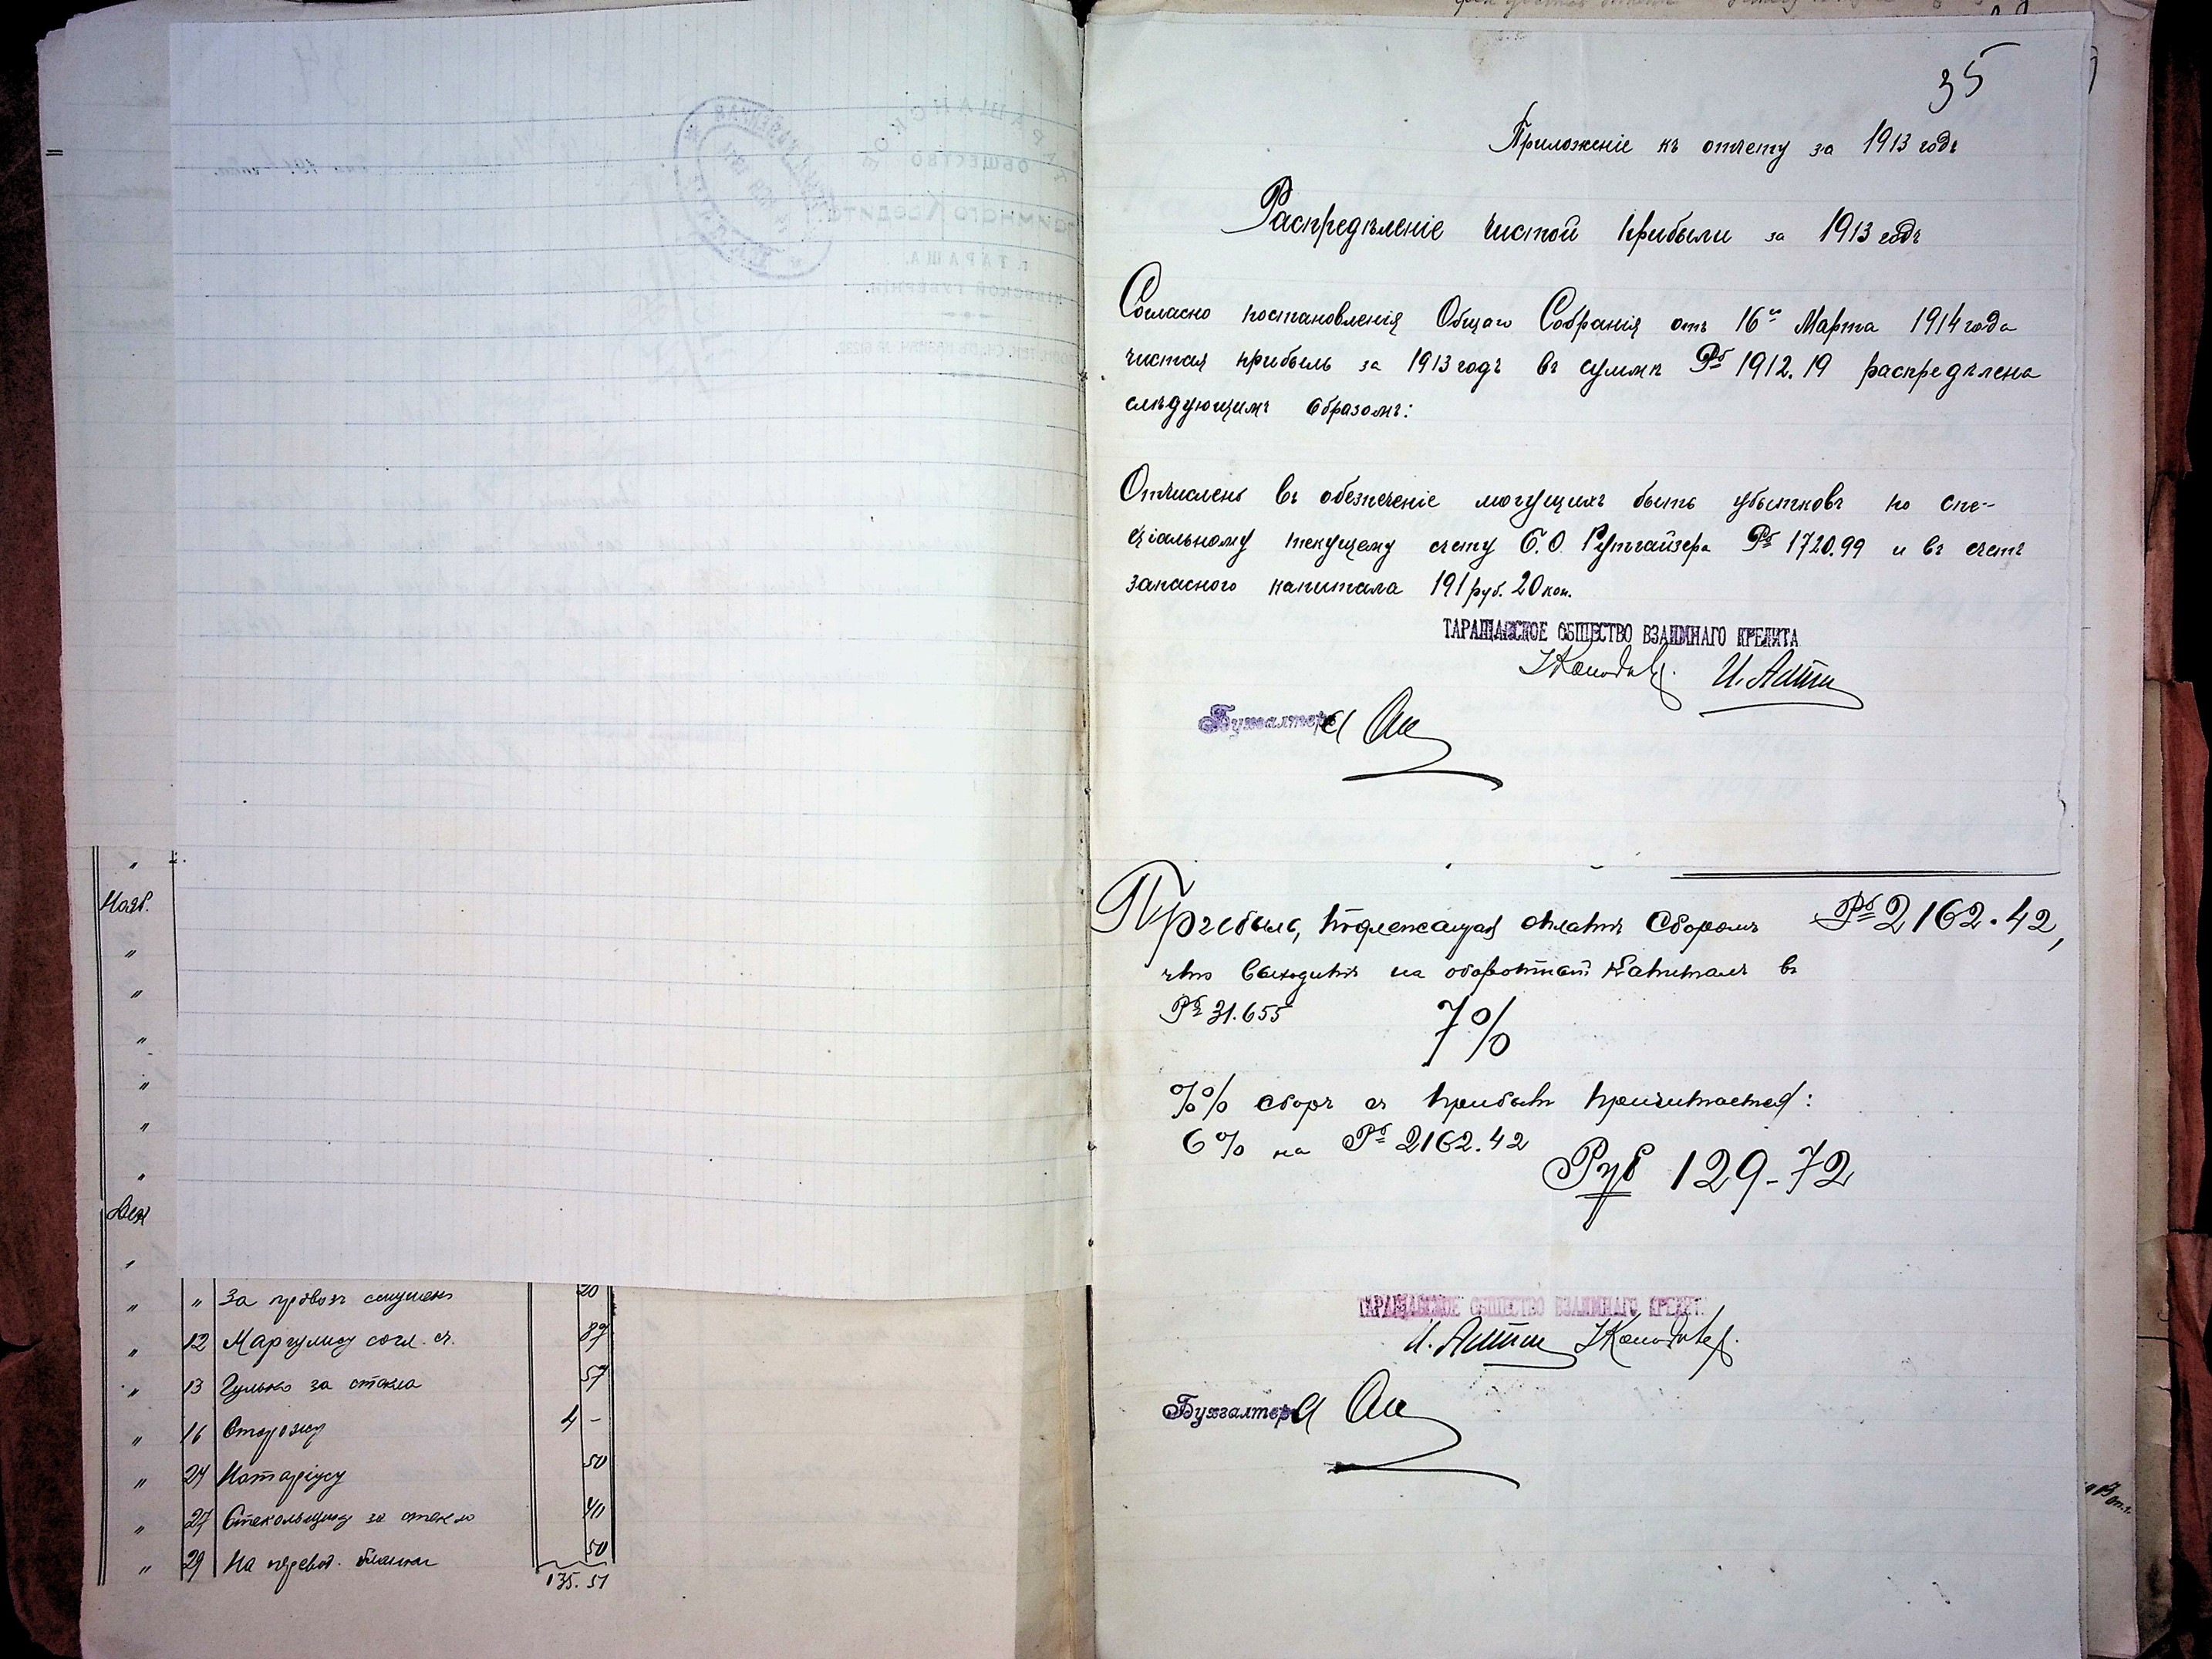 Нояб.
Дек
" " За провозъ 20
" 12 Маргулису согл. сч. 87
" 13 Гулько за стекла 57
" 16 Сторожу 4 -
" 24 Нотаріусу 50
" 27 Стекольщику за стекло 40
" 29 На перевод. бланки 50
135.51
35
Приложеніе къ отчету за 1913 годъ
Распредѣленіе чистой прибыли за 1913 годъ
Согласно постановленія Общаго Собранія отъ 16го Марта 1914 года
чистая прибыль за 1913 годъ въ суммѣ Рб 1912.19 распредѣлена
слѣдующимъ образомъ:
Отчислены въ обезпеченіе могущихъ быть убытковъ по спе-
ціальному текущему счету С.О. Рутгайзера Рб 1720.99 и въ счетъ
запаснаго капитала 191 руб. 20 коп.
ТАРАЩАНСКОЕ ОБЩЕСТВО ВЗАИМНАГО КРЕДИТА
Бухгалтеръ
Прибыль, подлежащая оплатѣ сборомъ Рб 2162.42,
что выходитъ на оборотный капиталъ въ
Рб 31.655 7%
%% сборъ съ прибыли причитается:
6% на Рб 2162.42
Руб 129-72
ТАРАЩАНСКОЕ ОБЩЕСТВО ВЗАИМНАГО КРЕДИТ.
Бухгалтеръ